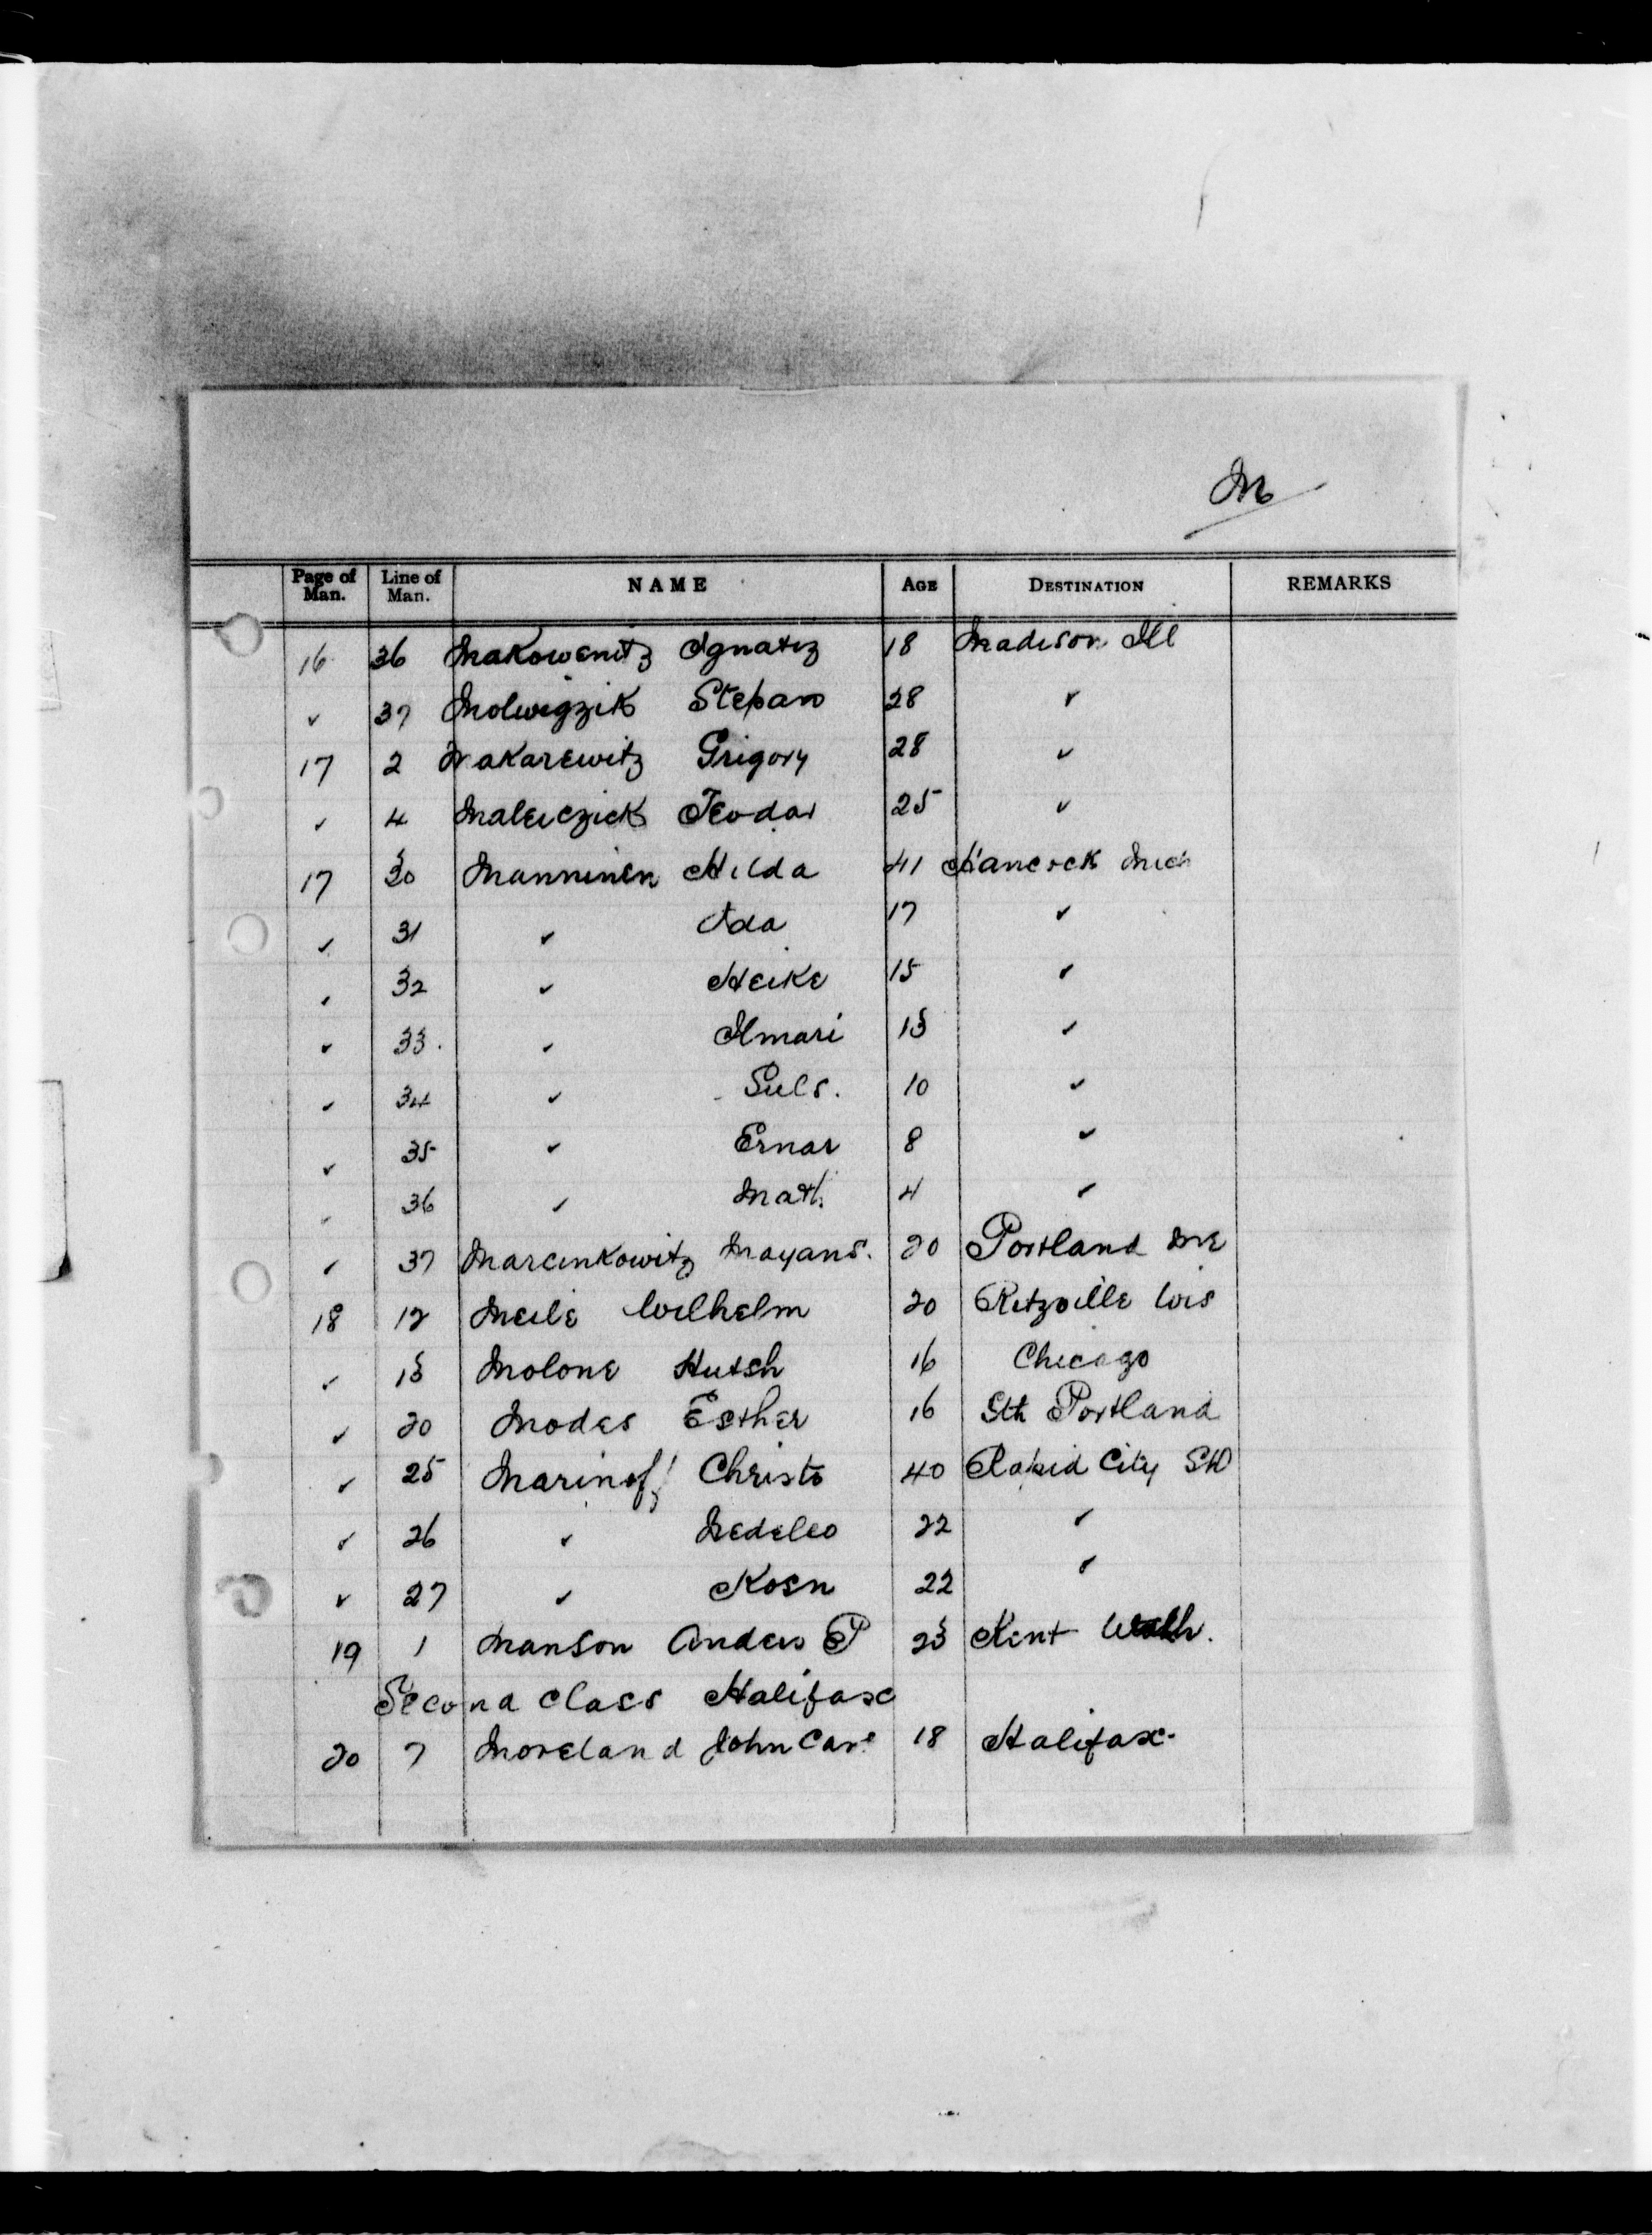 M
Page of Man. Line of Man. NAME AGE DESTINATION REMARKS
16 36 Makowenitz Ignatiz 18 Madison Ill
✓ 37 Molwigzik Stepan 28 ✓
17 2 Makarewitz Grigory 28 ✓
✓ 4 Maleiczick Teodar 25 ✓
17 30 Manninen Hilda 41 Hancock Mich
✓ 31 ✓ Ada 17 ✓
✓ 32 ✓ Heike 15 ✓
✓ 33. ✓ Ilmari 13 ✓
✓ 34 ✓ Suls. 10 ✓
✓ 35 ✓ Ernar 8 ✓
✓ 36 ✓ Math. 4 ✓
✓ 37 Marcinkowitz Mayans. 20 Portland Me
18 12 Meile Wilhelm 20 Ritzville Wis
✓ 13 Molone Hutsh 16 Chicago
✓ 20 Modes Esther 16 Sth Portland
✓ 25 Marinoff Christo 40 Rapid City SD
✓ 26 ✓ Nedelco 22 ✓
✓ 27 ✓ Kosn 22 ✓
19 1 Manson Anders P 23 Kent Wash.
Second Class Halifax
20 7 Moreland John 18 Halifax.